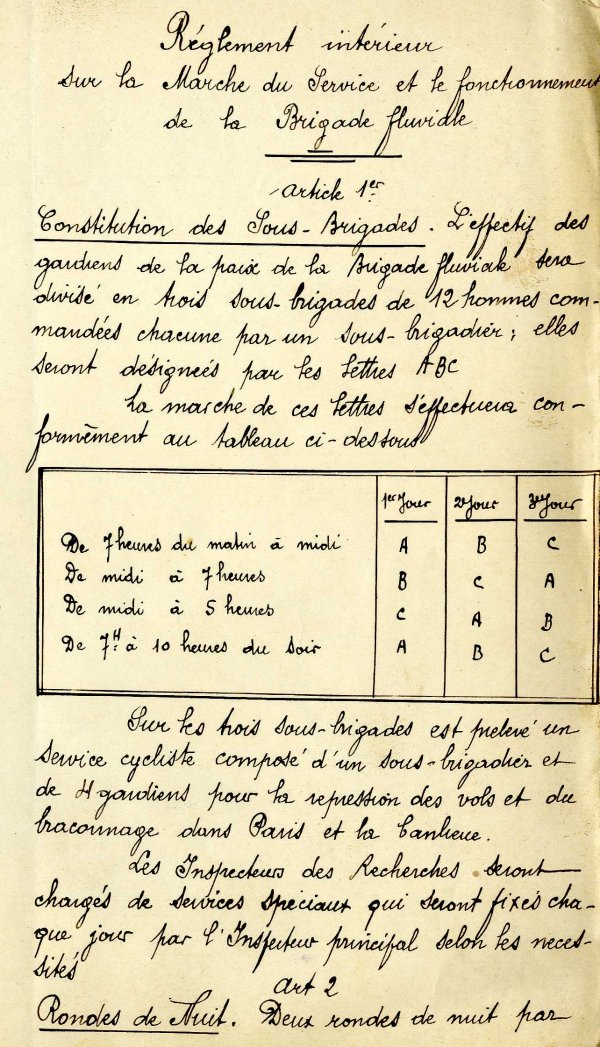 Réglement intérieur
sur la Marche du Service et le fonctionnement
de la Brigade fluviale
article 1er
Constitution des Sous-Brigades. L'effectif des
gardiens de la paix de la Brigade fluviale sera
divisé en trois sous-brigades de 12 hommes com-
mandées chacune par un sous-brigadier; elles
seront désigneés par les lettres ABC
La marche de ces lettres s'effectuera con-
formément au tableau ci-dessous
1er Jour 2e Jour 3e Jour
De 7 heures du matin à midi A B C
De midi à 7 heures B C A
De midi à 5 heures C A B
De 7H à 10 heures du soir A B C
Sur les trois sous-brigades est prelevé un
service cycliste composé d'un sous-brigadier et
de 4 gardiens pour la repression des vols et du
braconnage dans Paris et la banlieue.
Les Inspecteurs des Recherches seront
chargés de services spéciaux qui seront fixés cha-
que jour par l'Inspecteur principal selon les neces-
sités
art 2
Rondes de Nuit. Deux rondes de nuit par